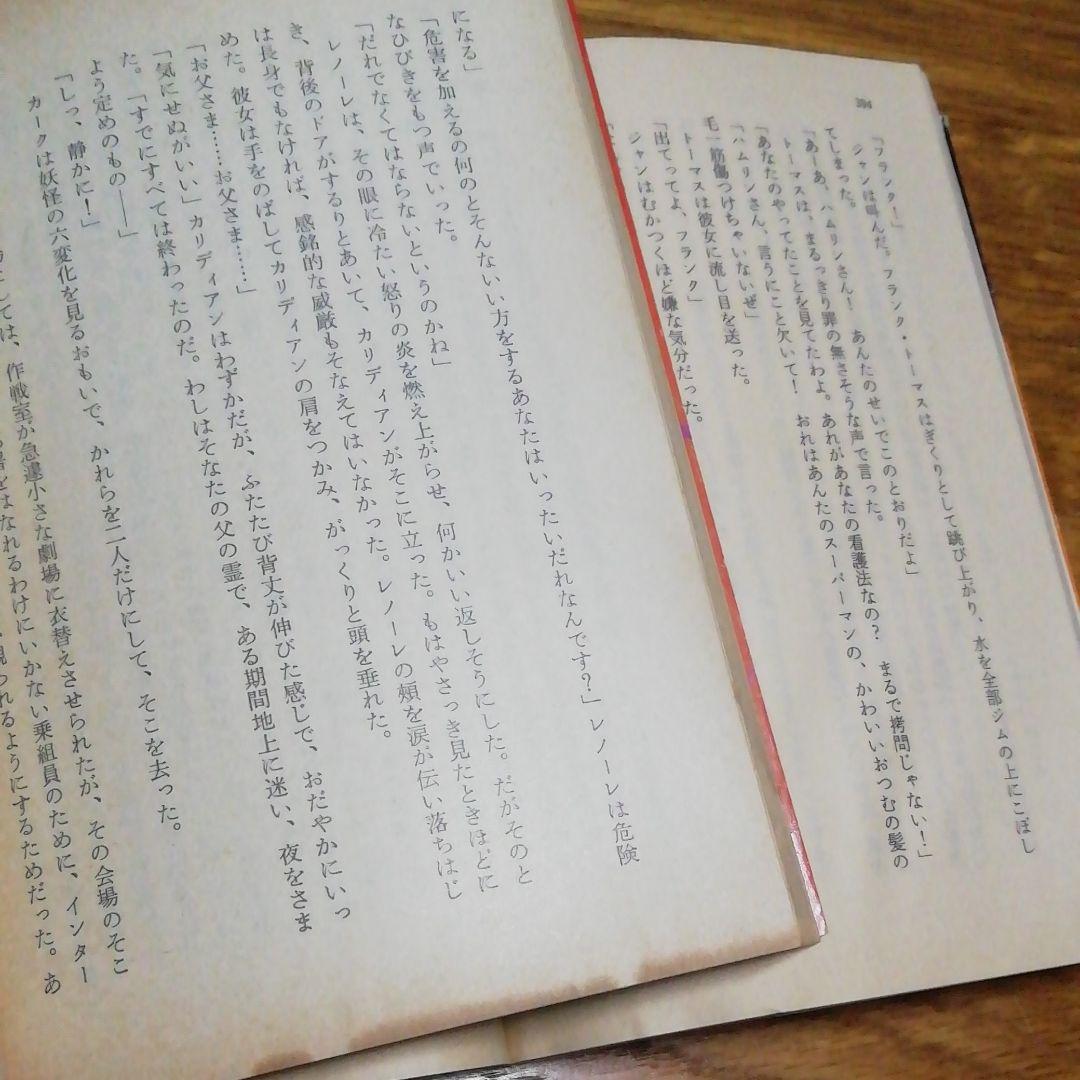 304
「フランク！」
ジャンは叫んだ。フランク・トーマスはぎくりとして跳び上がり、水を全部ジムの上にこぼし
てしまった。
「あーあ、ハムリンさん！　あんたのせいでこのとおりだよ」
トーマスは、まるっきり罪の無さそうな声で言った。
「あなたのやってたことを見てたわよ。あれがあなたの看護法なの？　まるで拷問じゃない！」
「ハムリンさん、言うにこと欠いて！　おれはあんたのスーパーマンの、かわいいおつむの髪の
毛一筋傷つけちゃいないぜ」
トーマスは彼女に流し目を送った。
「出てってよ、フランク」
ジャンはむかつくほど嫌な気分だった。
になる」
「危害を加えるの何のとそんないい方をするあなたはいったいだれなんです？」レノーレは危険
なひびきをもつ声でいった。
「だれでなくてはならないというのかね」
レノーレは、その眼に冷たい怒りの炎を燃え上がらせ、何かいい返しそうにした。だがそのと
き、背後のドアがするりとあいて、カリディアンがそこに立った。もはやさっき見たときほどに
は長身でもなければ、感銘的な威厳もそなえてはいなかった。レノーレの頬を涙が伝い落ちはじ
めた。彼女は手をのばしてカリディアンの肩をつかみ、がっくりと頭を垂れた。
「お父さま……お父さま……」
「気にせぬがいい」カリディアンはわずかだが、ふたたび背丈が伸びた感じで、おだやかにいっ
た。「すでにすべては終わったのだ。わしはそなたの父の霊で、ある期間地上に迷い、夜をさま
よう定めのもの――」
「しっ、静かに！」
カークは妖怪の六変化を見るおもいで、かれらを二人だけにして、そこを去った。
しては、作戦室が急遽小さな劇場に衣替えさせられたが、その会場のそこ
をはなれるわけにいかない乗組員のために、インター
られるようにするためだった。あ